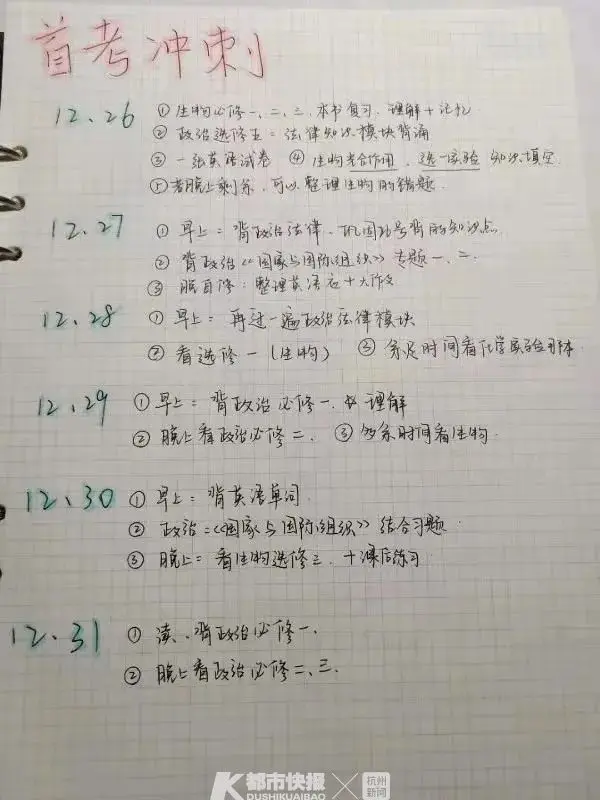 首考冲刺
12.26 ①生物必修一、二、三、本书复习. 理解+记忆
②政治选修五:法律知识模块背诵
③一张英语试卷 ④生物光合作用、选一实验 知识填空
⑤若晚上剩余、可以整理生物的错题.
12.27 ①早上:背政治法律、巩固26号背的知识点.
②背政治《国家与国际组织》专题一、二.
③晚自修:整理英语应+大作文
12.28 ①早上:再过一遍政治法律模块
②看选修一(生物) ③余足时间看化学实验
12.29 ①早上:背政治必修一. 理解
②晚上看政治必修二、 ③多余时间看生物.
12.30 ①早上:背英语单词.
②政治:《国家与国际组织》结合习题.
③晚上:看生物选修三、+课后练习
12.31 ①读、背政治必修一、
②晚上看政治必修二、三.
都市快报
DUSHIKUAIBAO
杭州
新闻